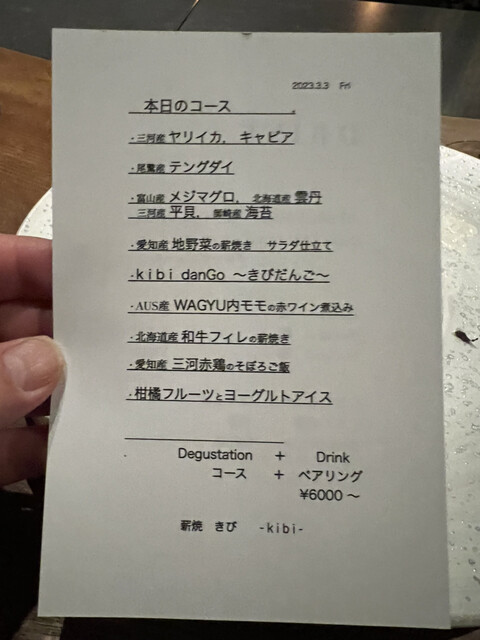 2023.3.3 Fri
本日のコース
・三河産 ヤリイカ, キャビア
・尾鷲産 テングダイ
・富山産 メジマグロ, 北海道産 雲丹
三河産 平貝, 篠島産 海苔
・愛知産 地野菜の薪焼き サラダ仕立て
・kibi danGo ～きびだんご～
・AUS産 WAGYU内モモの赤ワイン煮込み
・北海道産 和牛フィレの薪焼き
・愛知産 三河赤鶏のそぼろご飯
・柑橘フルーツとヨーグルトアイス
Degustation + Drink
コース + ペアリング
¥6000～
薪焼 きび -kibi-